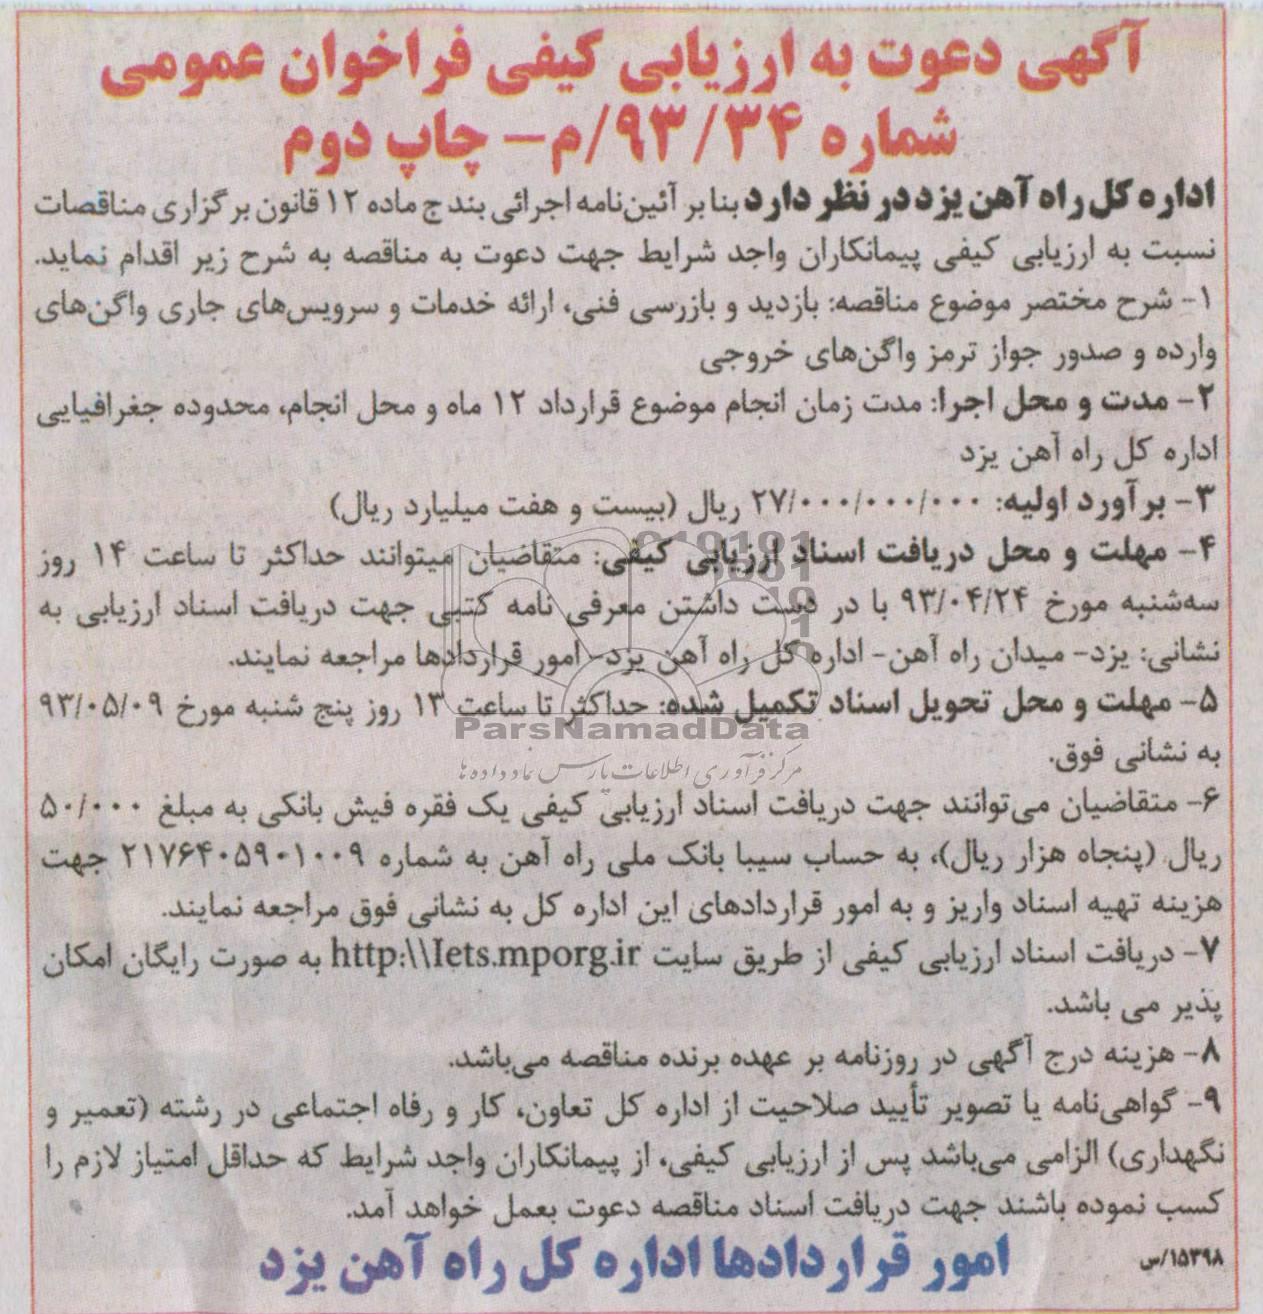 آگهی دعوت به ارزیابی کیفی فراخوان عمومی
شماره ۹۳/۳۴/م- چاپ دوم
اداره کل راه آهن یزد در نظر دارد بنا بر آئین‌نامه اجرائی بند ج ماده ۱۲ قانون برگزاری مناقصات
نسبت به ارزیابی کیفی پیمانکاران واجد شرایط جهت دعوت به مناقصه به شرح زیر اقدام نماید.
۱- شرح مختصر موضوع مناقصه: بازدید و بازرسی فنی، ارائه خدمات و سرویس‌های جاری واگن‌های
وارده و صدور جواز ترمز واگن‌های خروجی
۲- مدت و محل اجرا: مدت زمان انجام موضوع قرارداد ۱۲ ماه و محل انجام، محدوده جغرافیایی
اداره کل راه آهن یزد
۳- برآورد اولیه: ۲۷/۰۰۰/۰۰۰/۰۰۰ ریال (بیست و هفت میلیارد ریال)
۴- مهلت و محل دریافت اسناد ارزیابی کیفی: متقاضیان میتوانند حداکثر تا ساعت ۱۴ روز
سه‌شنبه مورخ ۹۳/۰۴/۲۴ با در دست داشتن معرفی نامه کتبی جهت دریافت اسناد ارزیابی به
نشانی: یزد- میدان راه آهن- اداره کل راه آهن یزد- امور قراردادها مراجعه نمایند.
۵- مهلت و محل تحویل اسناد تکمیل شده: حداکثر تا ساعت ۱۳ روز پنج شنبه مورخ ۹۳/۰۵/۰۹
ParsNamadData
به نشانی فوق.
مرکز فرآوری اطلاعات پارس نماد داده ها
۶- متقاضیان می‌توانند جهت دریافت اسناد ارزیابی کیفی یک فقره فیش بانکی به مبلغ ۵۰/۰۰۰
ریال (پنجاه هزار ریال)، به حساب سیبا بانک ملی راه آهن به شماره ۲۱۷۶۴۰۵۹۰۱۰۰۹ جهت
هزینه تهیه اسناد واریز و به امور قراردادهای این اداره کل به نشانی فوق مراجعه نمایند.
۷- دریافت اسناد ارزیابی کیفی از طریق سایت http:\\Iets.mporg.ir به صورت رایگان امکان
پذیر می باشد.
۸- هزینه درج آگهی در روزنامه بر عهده برنده مناقصه می‌باشد.
۹- گواهی‌نامه یا تصویر تأیید صلاحیت از اداره کل تعاون، کار و رفاه اجتماعی در رشته (تعمیر و
نگهداری) الزامی می‌باشد پس از ارزیابی کیفی، از پیمانکاران واجد شرایط که حداقل امتیاز لازم را
کسب نموده باشند جهت دریافت اسناد مناقصه دعوت بعمل خواهد آمد.
۱۵۳۹۸/س
امور قراردادها اداره کل راه آهن یزد